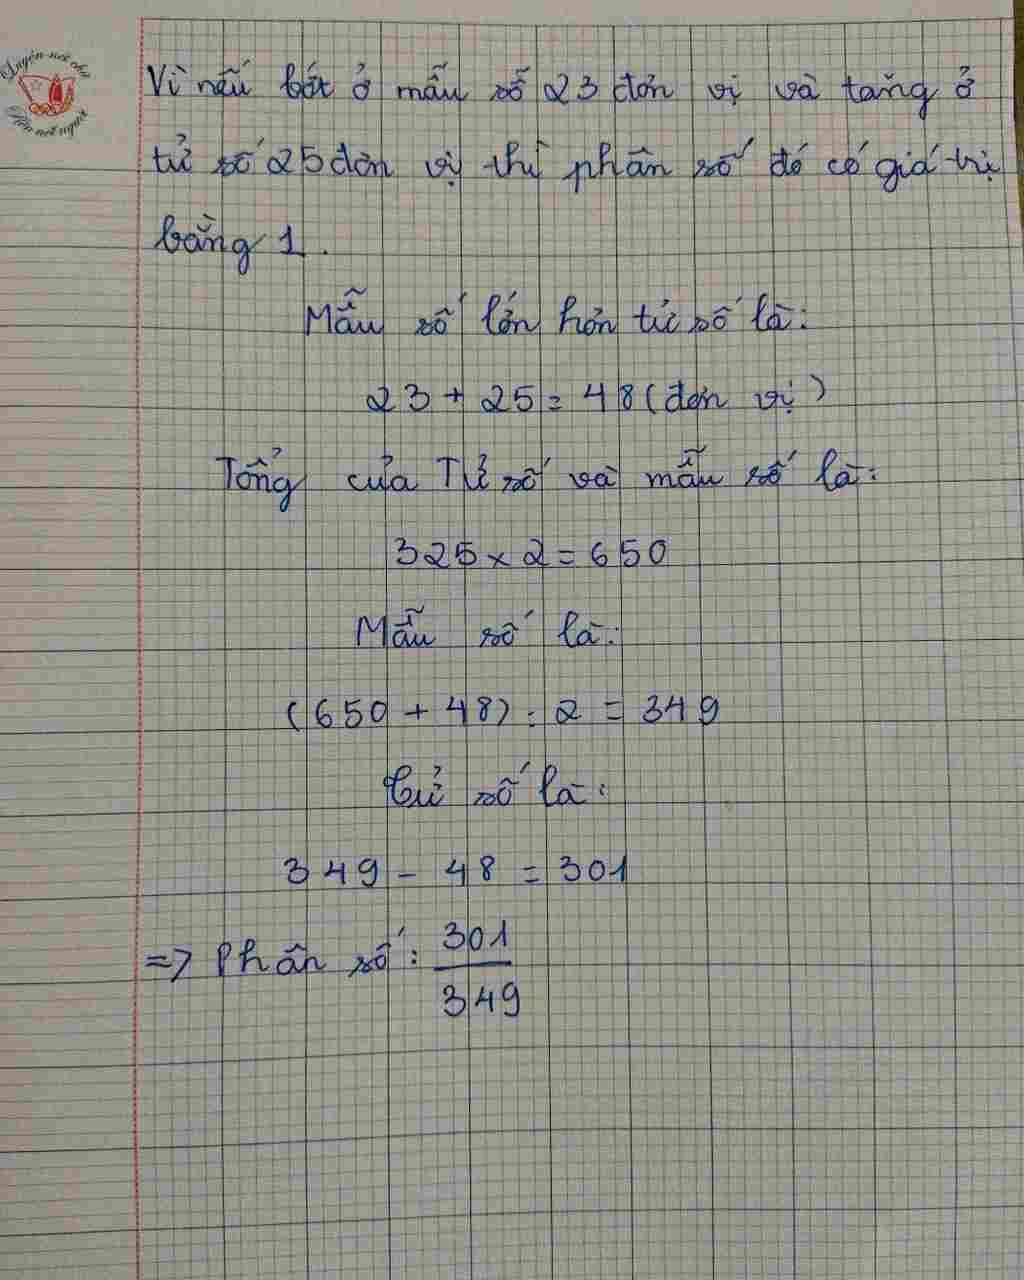 Luyện nét chữ
Rèn nết người
Vì nếu bớt ở mẫu số 23 đơn vị và tăng ở
tử số 25 đơn vị thì phân số đó có giá trị
bằng 1.
Mẫu số lớn hơn tử số là:
23 + 25 = 48 (đơn vị)
Tổng của Tử số và mẫu số là:
325 x 2 = 650
Mẫu số là:
(650 + 48) : 2 = 349
tử số là:
349 - 48 = 301
=> Phân số: 301
349